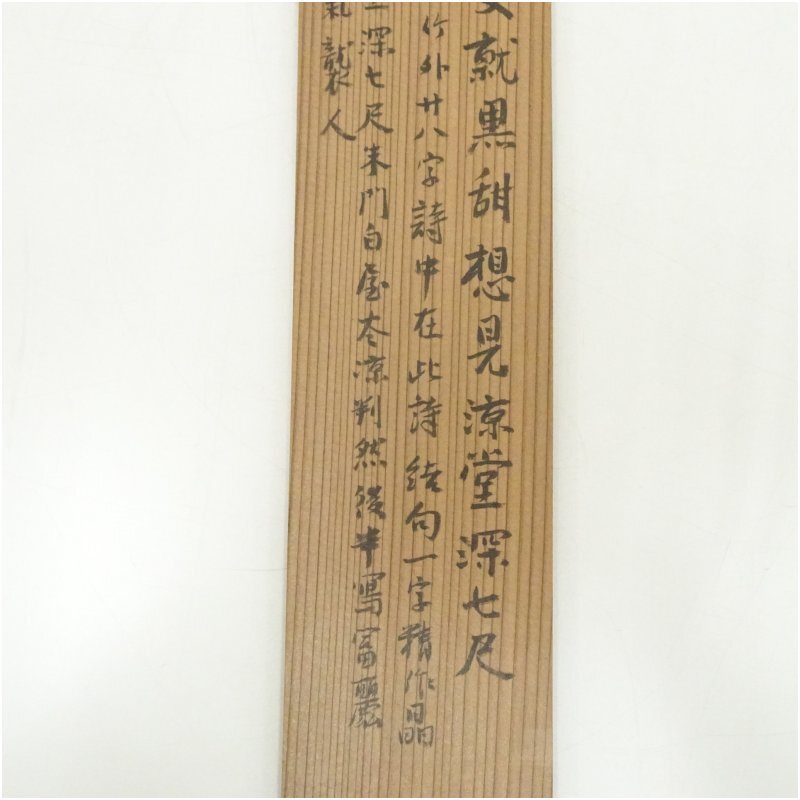 就黒甜想見涼堂深七尺
竹外廿八字詩中在此詩結句一字精作晶
深七尺朱門白屋冷涼判然後半写富麗
氣襲人